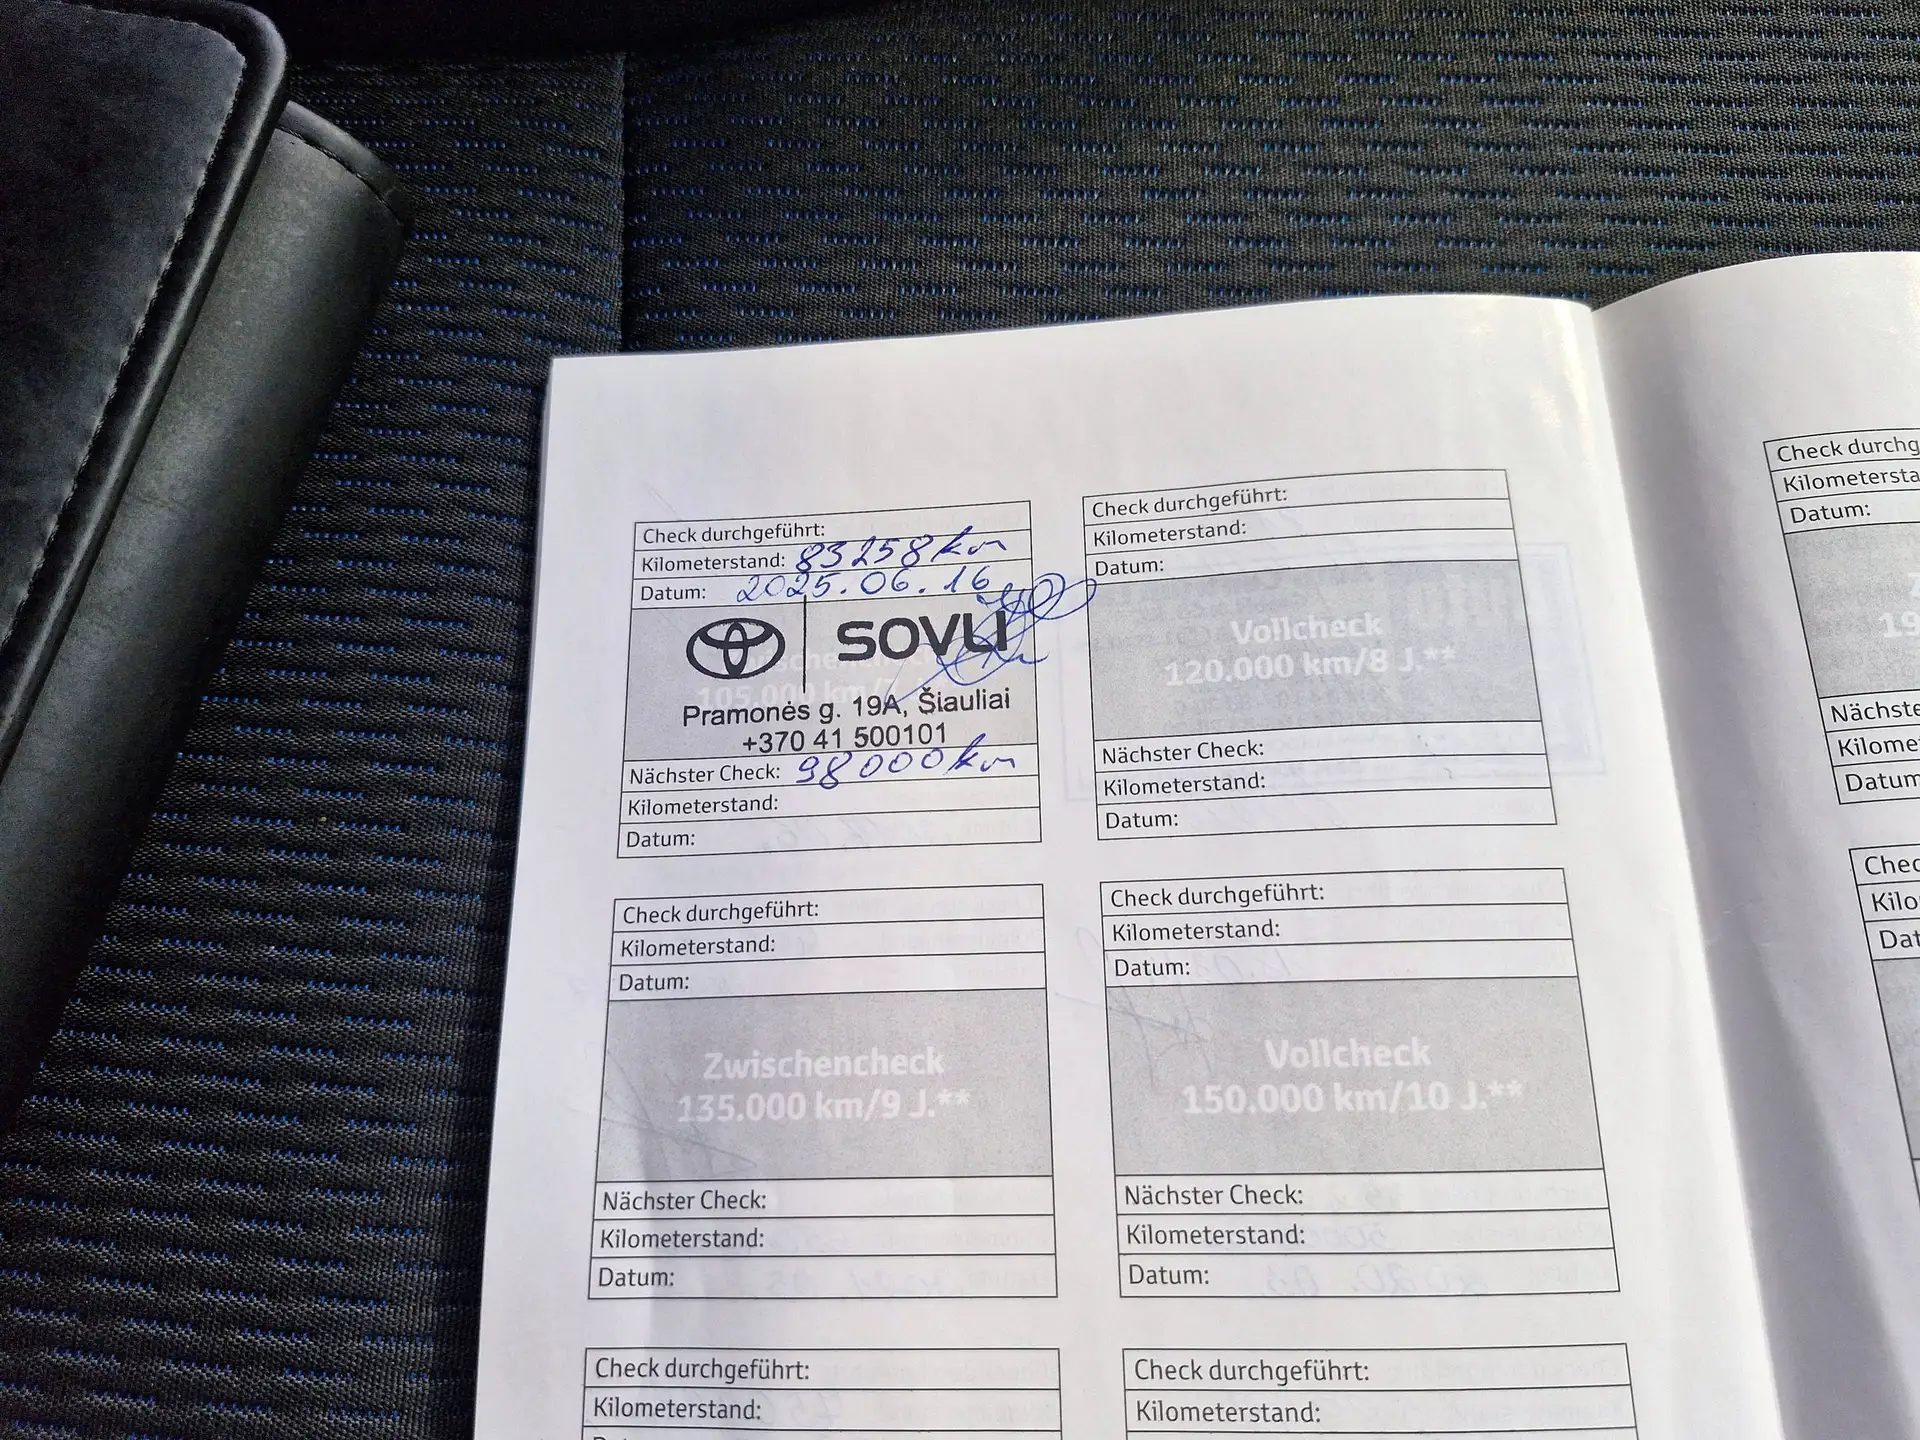 Check durchgeführt:
Kilometerstand: 83258 km
Datum: 2025.06.16
SOVLI
105.000 km/7 J.
Pramonės g. 19A, Šiauliai
+370 41 500101
Nächster Check: 98000 km
Kilometerstand:
Datum:
Check durchgeführt:
Kilometerstand:
Datum:
Vollcheck
120.000 km/8 J.**
Nächster Check:
Kilometerstand:
Datum:
Check durchgeführt:
Kilometerstand:
Datum:
Zwischencheck
135.000 km/9 J.**
Nächster Check:
Kilometerstand:
Datum:
Check durchgeführt:
Kilometerstand:
Datum:
Vollcheck
150.000 km/10 J.**
Nächster Check:
Kilometerstand:
Datum:
Check durchgeführt:
Kilometerstand:
Check durchgeführt:
Kilometerstand:
Check durchg
Kilometersta
Datum:
19
Nächste
Kilome
Datum
Chec
Kilo
Dat